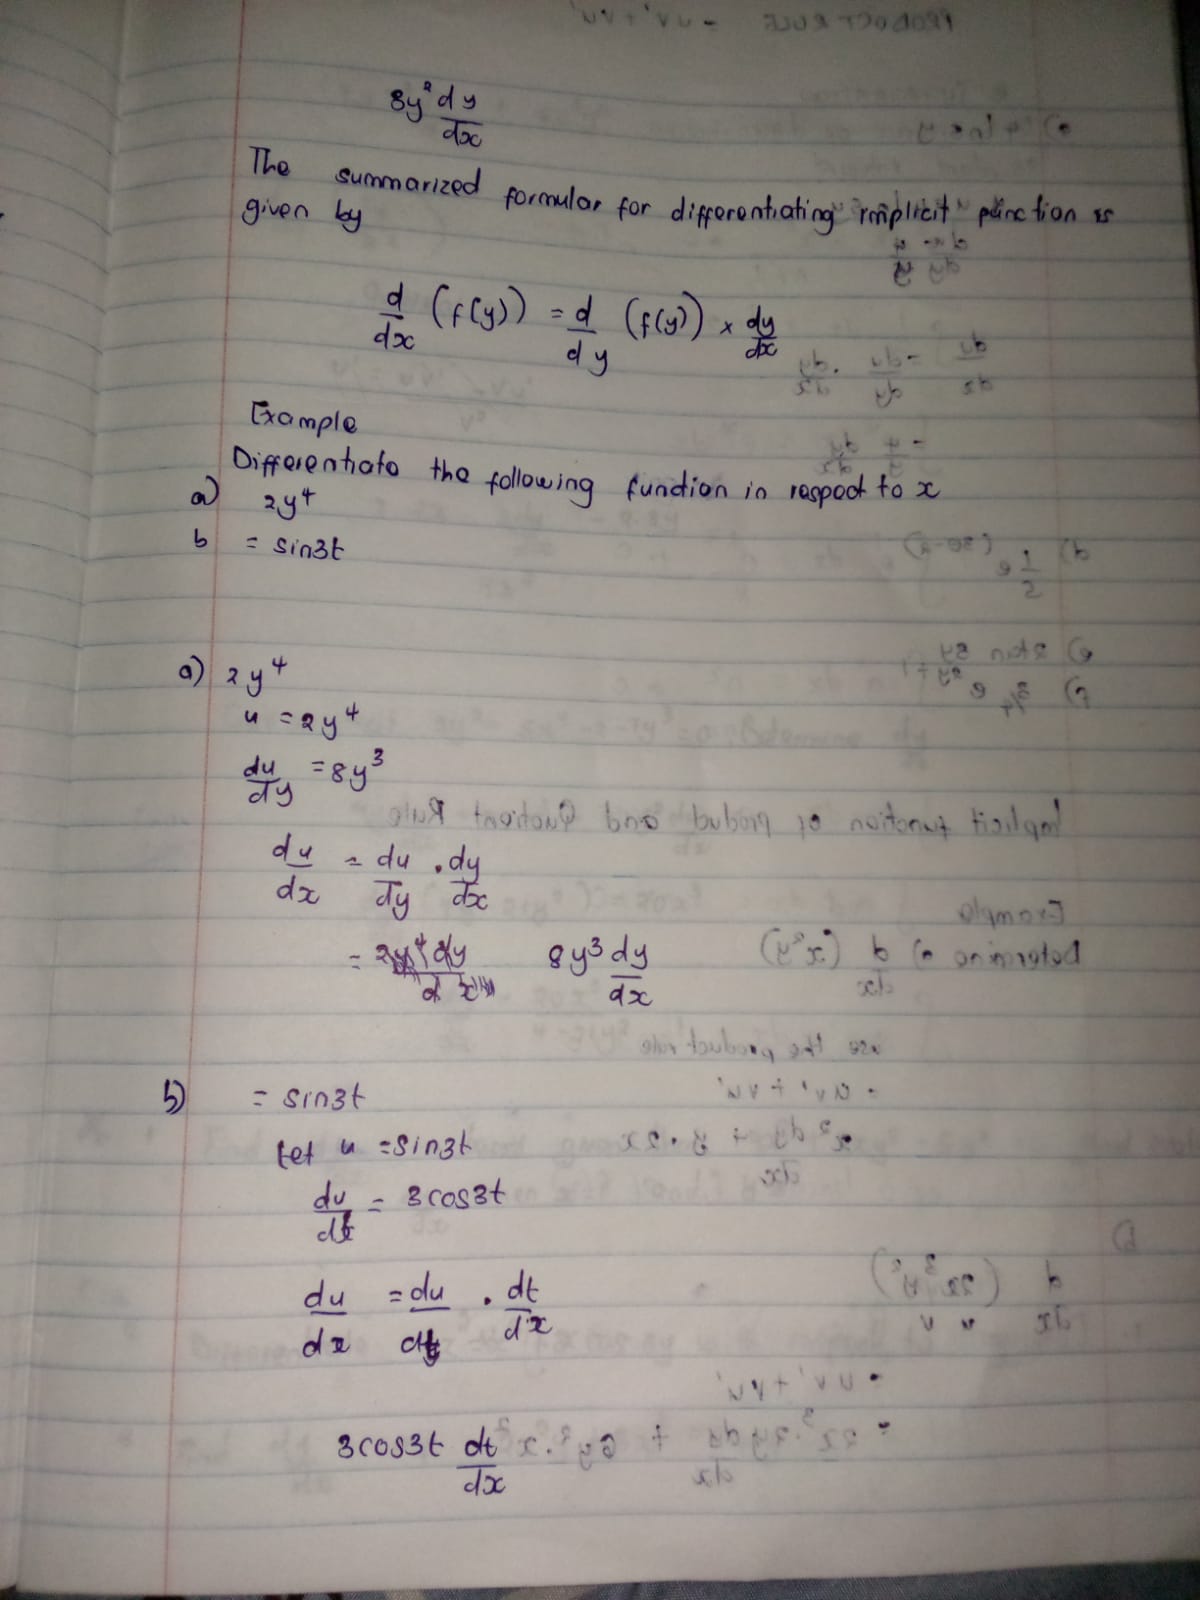 8y² dy/dx
The summarized formular for differentiating implicit function is
given by
d/dx (f(y)) = d/dy (f(y)) × dy/dx
Example
Differentiate the following function in respect to x
a) 2y⁴
b = sin3t
a) 2y⁴
u = 2y⁴
du/dy = 8y³
du/dx = du/dy . dy/dx
= 8y³ dy/dx
b) = sin3t
Let u = sin3t
du/dt = 3cos3t
du/dx = du/dt . dt/dx
3cos3t dt/dx